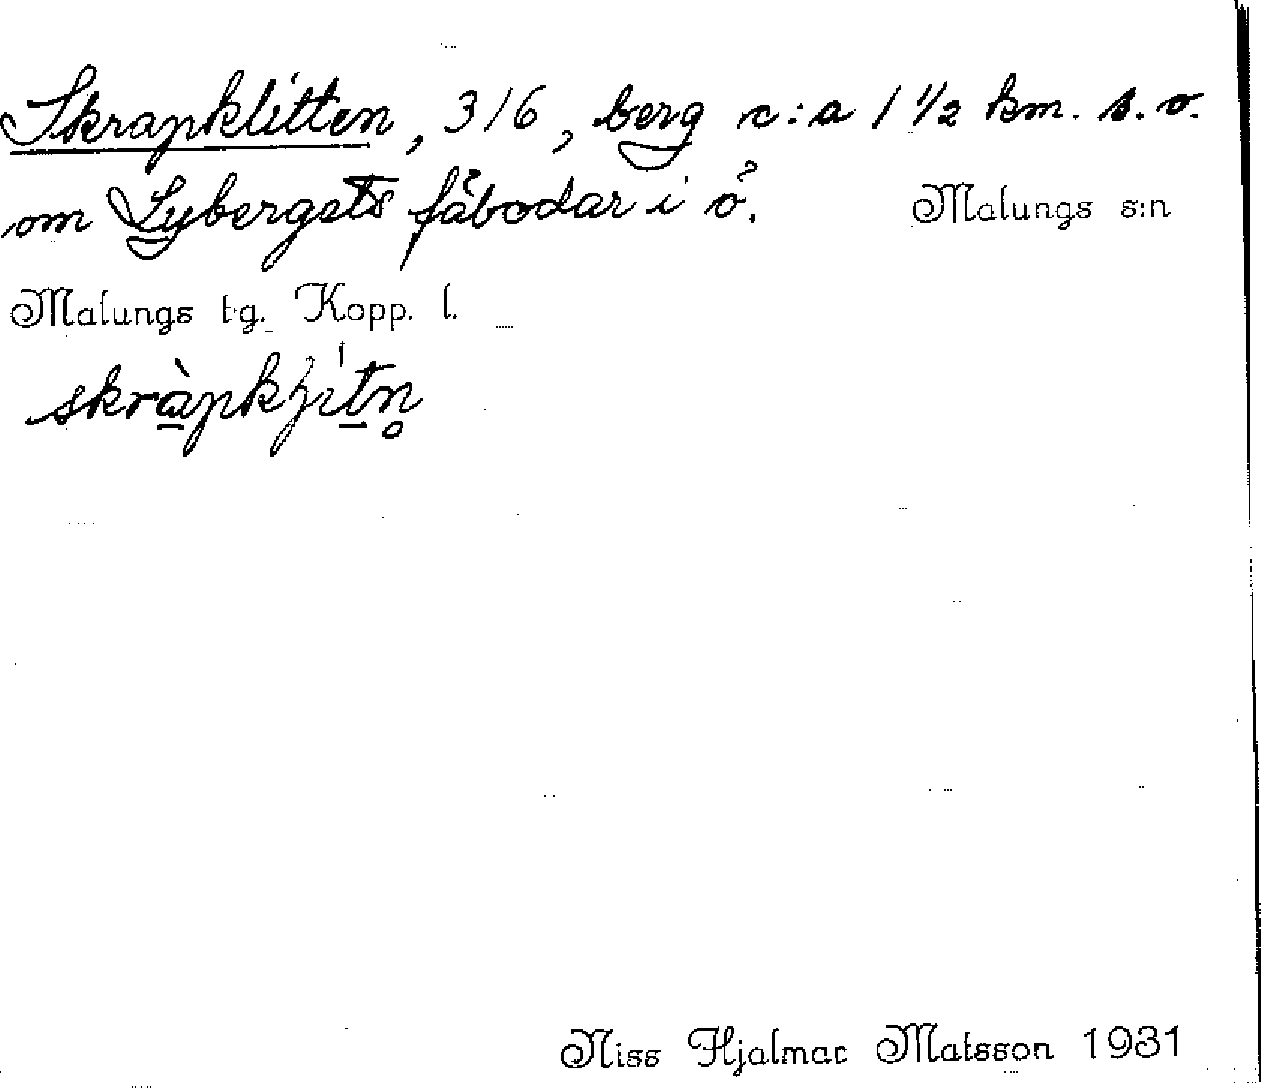 Skrapklitten, 316, berg c:a 1 1/2 km. s.v.
om Lybergets fäbodar i ö. Malungs s:n
Malungs tg. Kopp. l.
Niss Hjalmar Matsson 1931